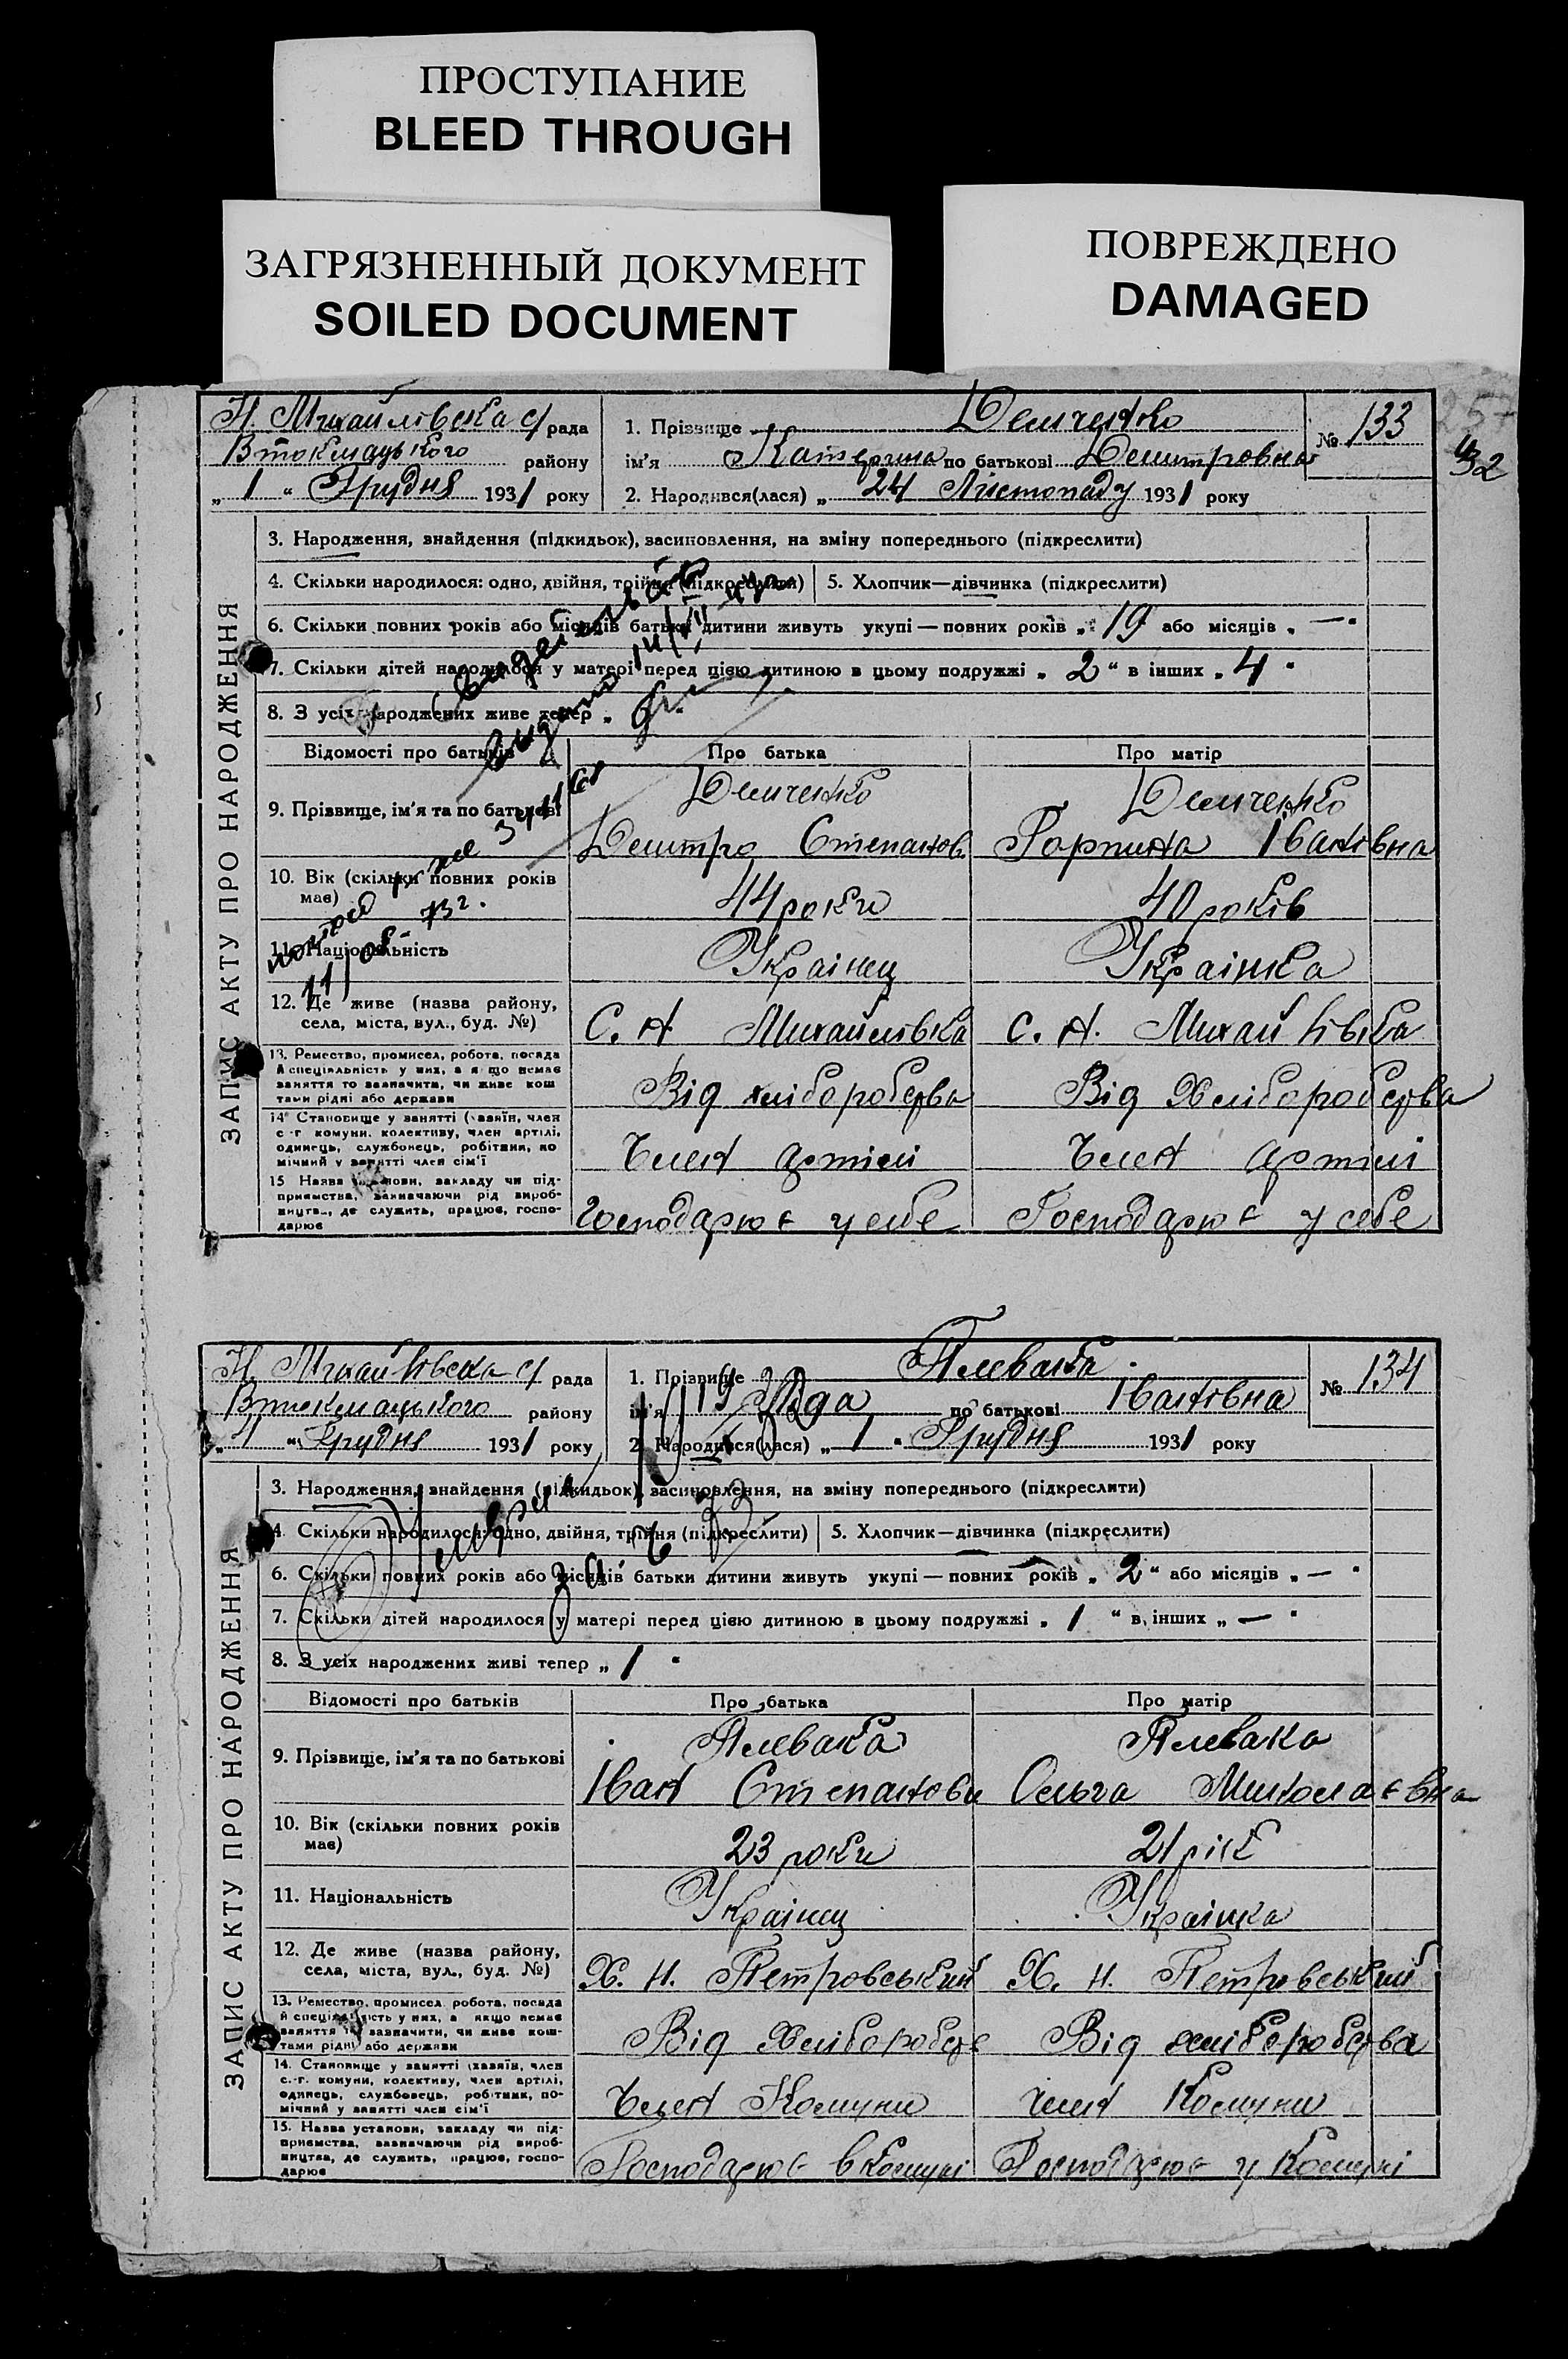 ПРОСТУПАНИЕ
BLEED THROUGH
ЗАГРЯЗНЕННЫЙ ДОКУМЕНТ
SOILED DOCUMENT
ПОВРЕЖДЕНО
DAMAGED
257
432
ЗАПИС АКТУ ПРО НАРОДЖЕННЯ
Н. Михайлівська с/рада
Втокмацького району
„ 1 “ Грудня 1931 року
1. Прізвище Демченко
ім'я Катерина по батькові Демитровна
№ 133
2. Народився(лася) „ 24 Листопаду 1931 року
3. Народження, знайдення (підкидьок), засиновлення, на зміну попереднього (підкреслити)
4. Скільки народилося: одно, двійня, трійня (підкреслити) 5. Хлопчик—дівчинка (підкреслити)
6. Скільки повних років або місяців батьки дитини живуть укупі — повних років „ 19 або місяців „ — "
7. Скільки дітей народилося у матері перед цією дитиною в цьому подружжі „ 2 “ в інших „ 4 "
8. З усіх народжених живе тепер „
Відомості про батьків Про батька Про матір
9. Прізвище, ім'я та по батькові
Демченко Демченко
Демитро Степанов. Горпина Івановна
10. Вік (скільки повних років має) 44 роки 40 років
11. Національність Українец Українка
12. Де живе (назва району, села, міста, вул., буд. №)
С. Н. Михайлівка С. Н. Михайлівка
13. Ремество, промисел, робота, посада й спеціяльність у них, а якщо немає заняття то зазначити, чи живе коштами рідні або держави
Від хліборобства Від Хліборобства
14. Становище у занятті (хазяїн, член с.-г. комуни, колективу, член артілі, одинець, службовець, робітник, помічний у занятті член сім'ї
Член артілі Член артілі
15 Назва установи, закладу чи підприємства, зазначаючи рід виробництва, де служить, працює, господарює
Господарює у себе Господарює у себе
ЗАПИС АКТУ ПРО НАРОДЖЕННЯ
Н. Михайлівська с/рада
Втокмацького району
„ 1 “ Грудня 1931 року
1. Прізвище Плевака
ім'я Ліда по батькові Івановна
№ 134
2. Народився(лася) „ 1 “ Грудня 1931 року
3. Народження, знайдення (підкидьок), засиновлення, на зміну попереднього (підкреслити)
4. Скільки народилося: одно, двійня, трійня (підкреслити) 5. Хлопчик—дівчинка (підкреслити)
6. Скільки повних років або місяців батьки дитини живуть укупі — повних років „ 2 “ або місяців „ — "
7. Скільки дітей народилося у матері перед цією дитиною в цьому подружжі „ 1 “ в інших „ — "
8. З усіх народжених живі тепер „ 1 "
Відомості про батьків Про батька Про матір
9. Прізвище, ім'я та по батькові
Плевака Плевака
Іван Степанови Ольга Миколаєвна
10. Вік (скільки повних років має) 23 роки 21 рік
11. Національність Українец Українка
12. Де живе (назва району, села, міста, вул., буд. №)
Х. Н. Петровський Х. Н. Петровський
13. Ремество, промисел, робота, посада й спеціяльність у них, а якщо немає заняття то зазначити, чи живе коштами рідні або держави
Від Хліборобств Від хліборобства
14. Становище у занятті (хазяїн, член с.-г. комуни, колективу, член артілі, одинець, службовець, робітник, помічний у занятті член сім'ї
Член Комуни член Комуни
15. Назва установи, закладу чи підприємства, зазначаючи рід виробництва, де служить, працює, господарює
Господарює в комуні Господарює у Комуні